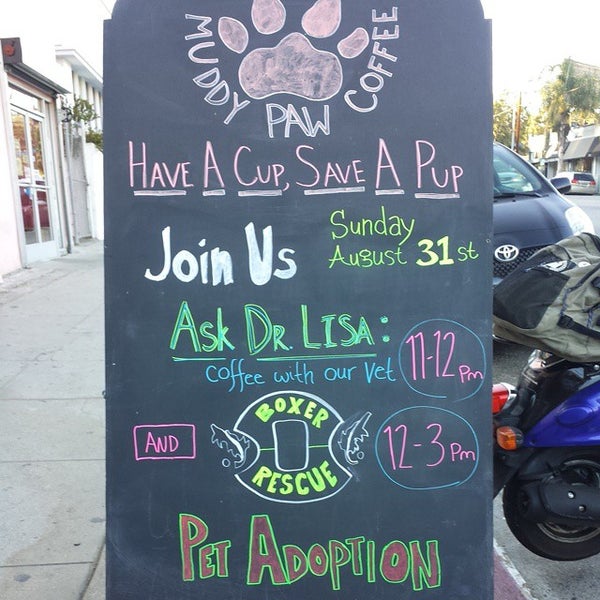 MUDDY PAW COFFEE
HAVE A CUP, SAVE A PUP
Join Us
Sunday
August 31st
ASK DR. LISA:
coffee with our vet
11-12 pm
AND
BOXER
RESCUE
12-3 pm
PET ADOPTION